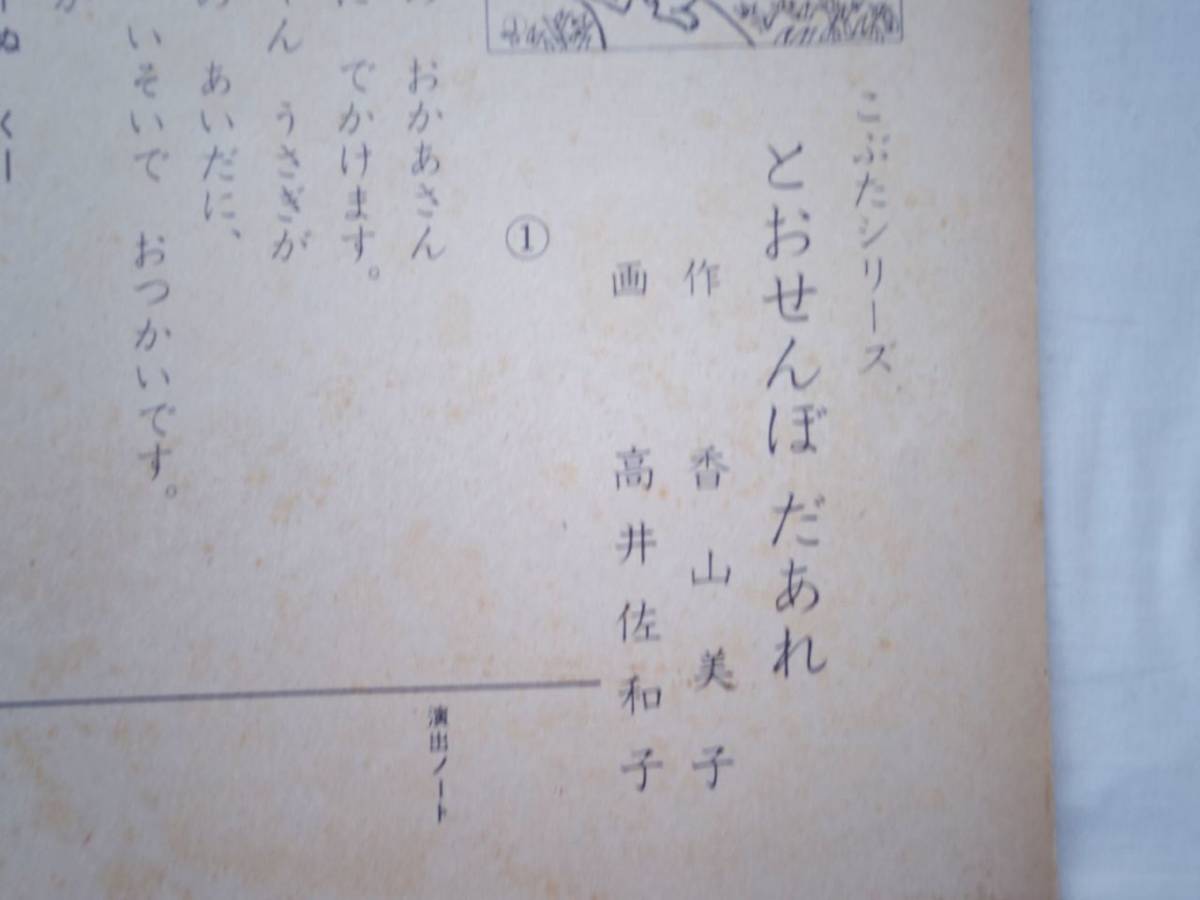 こぶたシリーズ
とおせんぼ だあれ
作 香山美子
画 高井佐和子
①
おかあさん
でかけます。
うさぎが
あいだに、
いそいで おつかいです。
くー
演出ノート